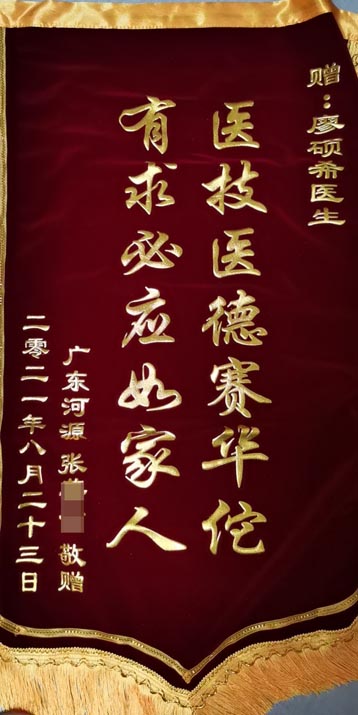 赠：廖硕希医生
医技医德赛华佗
有求必应如家人
广东河源 张 敬赠
二零二一年八月二十三日